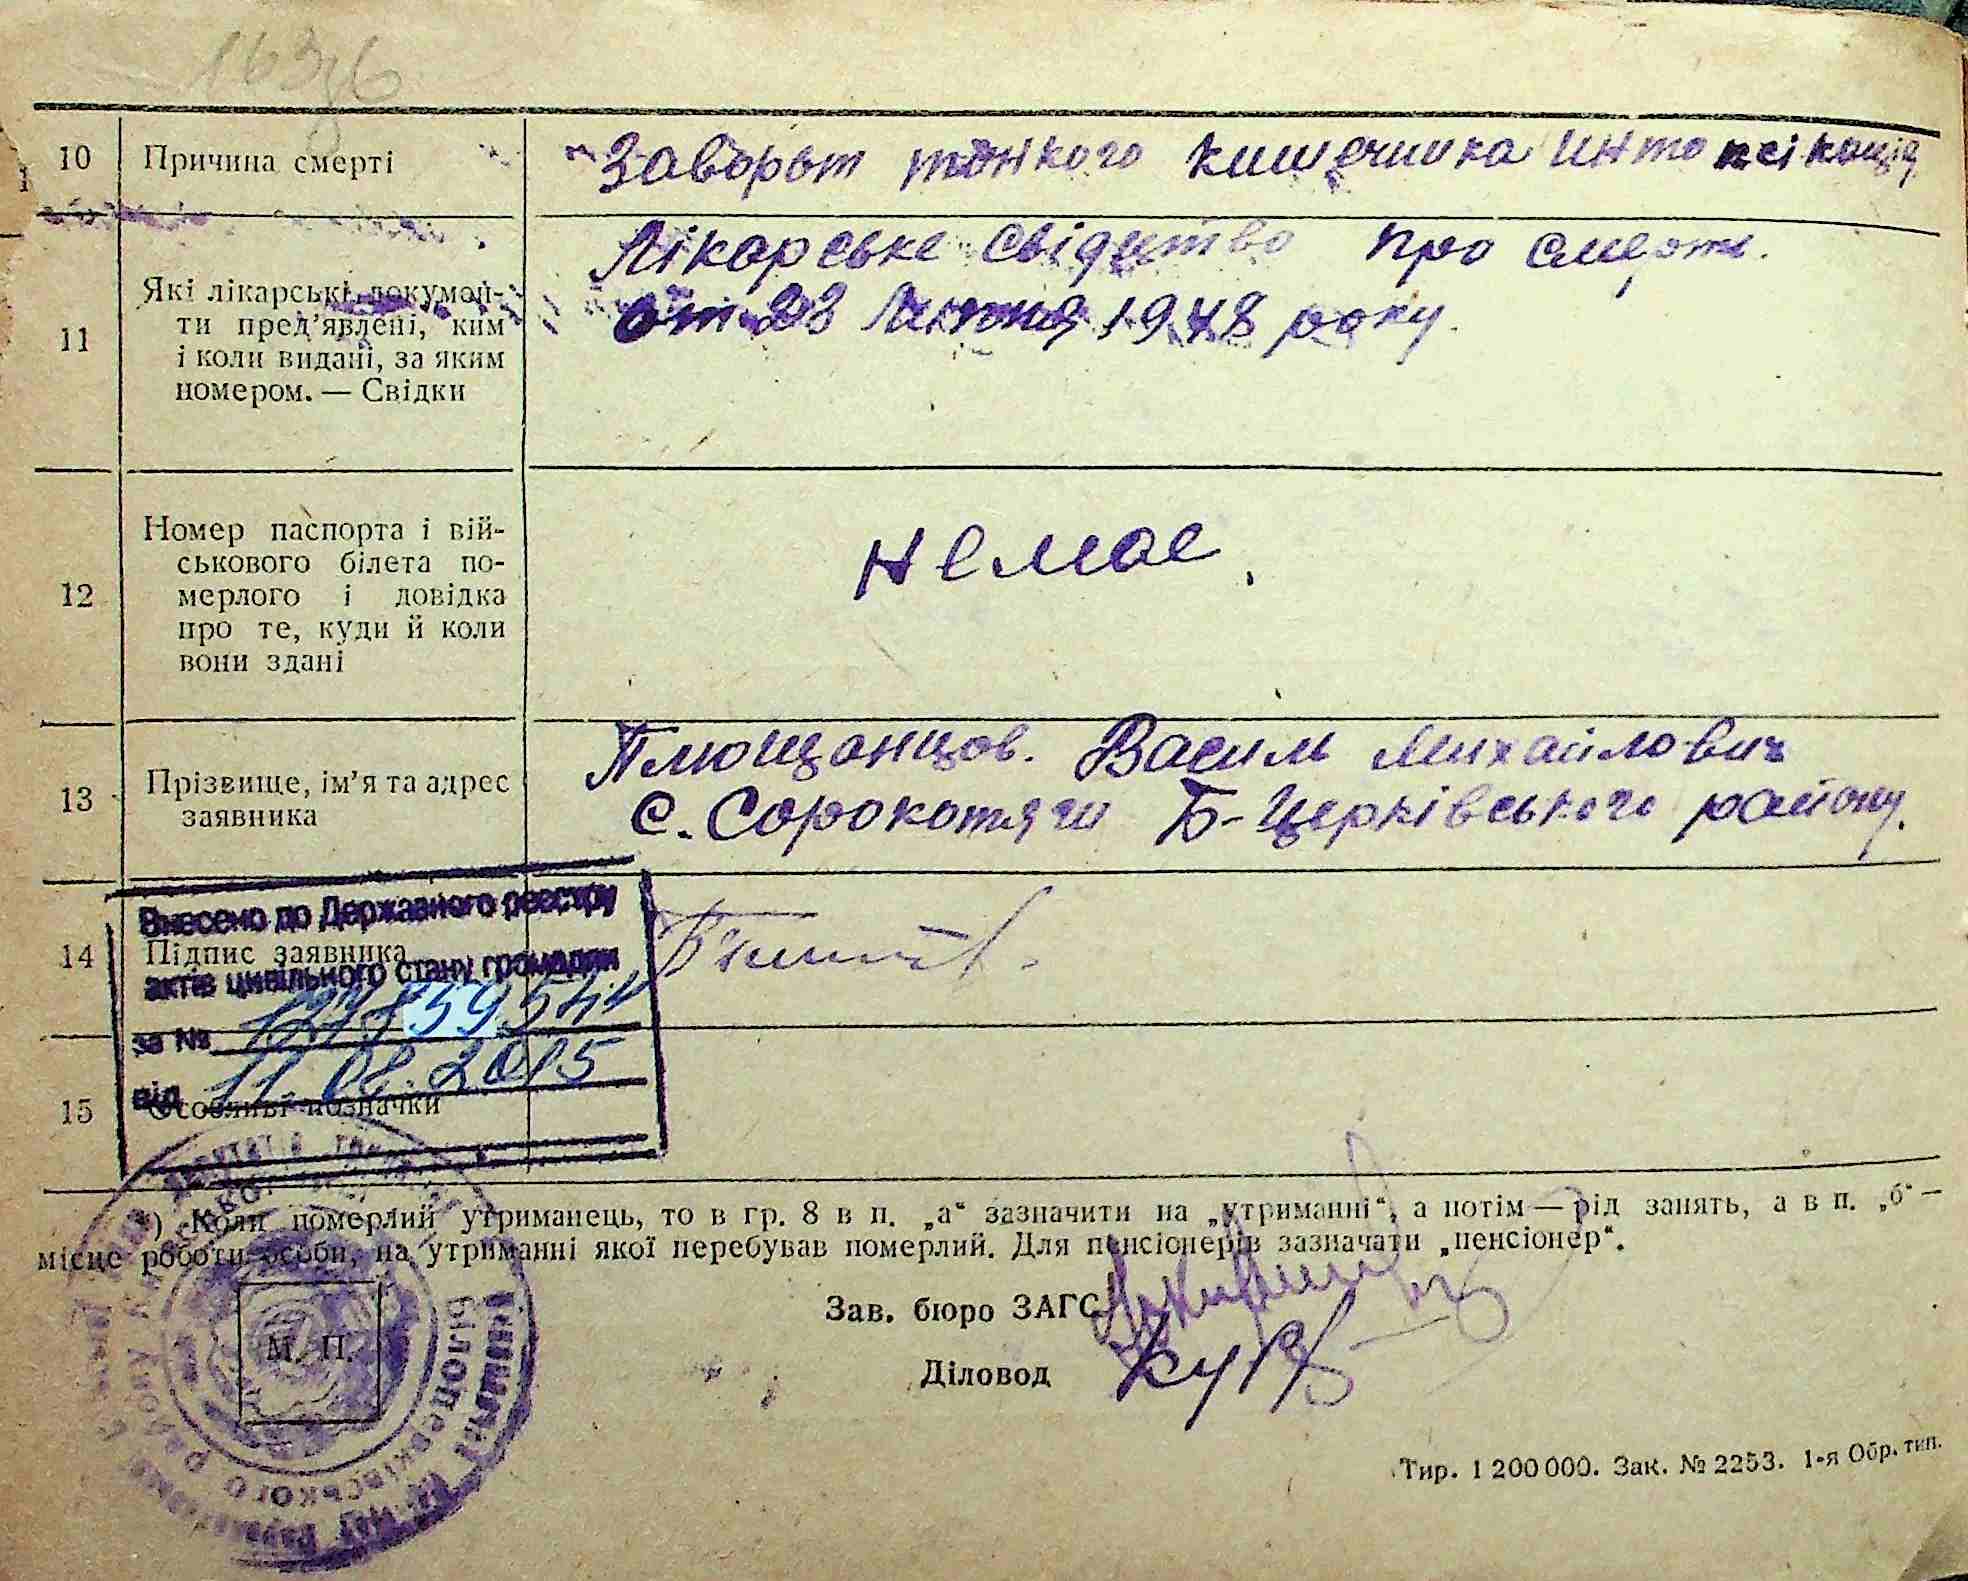 10 Причина смерті
Заворот тонкого кишечника интоксікація
11 Які лікарські докумен-
ти пред’явлені, ким
і коли видані, за яким
номером. — Свідки
Лікарське свідетво про смерть.
от 23 Липня 1948 року.
12 Номер паспорта і вій-
ськового білета по-
мерлого і довідка
про те, куди й коли
вони здані
Немає.
13 Прізвище, ім’я та адрес
заявника
Плющанцов. Василь Михайлович
С. Сорокотяги Б-Церківського району.
14 Підпис заявника
Внесено до Державного реєстру
актів цивільного стану громадян
за №
від 11.08.2015
15 Особливі позначки
*) Коли померлий утриманець, то в гр. 8 в п. „а“ зазначити на „утриманні“, а потім — рід занять, а в п. „б“ —
місце роботи особи, на утриманні якої перебував померлий. Для пенсіонерів зазначати „пенсіонер“.
Зав. бюро ЗАГС
Діловод
М. П.
Тир. 1 200 000. Зак. № 2253. 1-я Обр. тип.